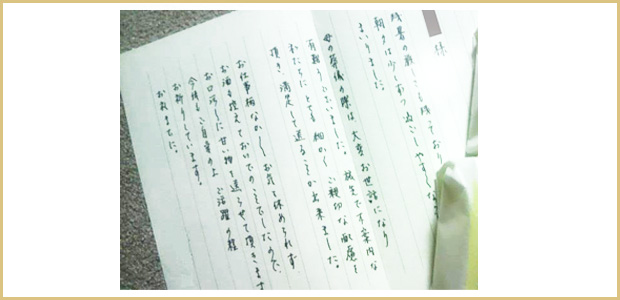 様
残暑の厳しさも残っており
朝夕は少しずつ過ごしやすくな
まいりました。
母の葬儀の際は大変お世話になり
有難うございました。案内な
私たちにとても細かくご親切な配慮を
頂き、満足して送ることが出来ました。
お仕事柄なかなかお気も休められず
お酒も控えておいでのことでしたので
お口汚しに甘い物を送らせて頂きます
今後もご自愛の上ご活躍の程
お祈りしています。
お礼までに。